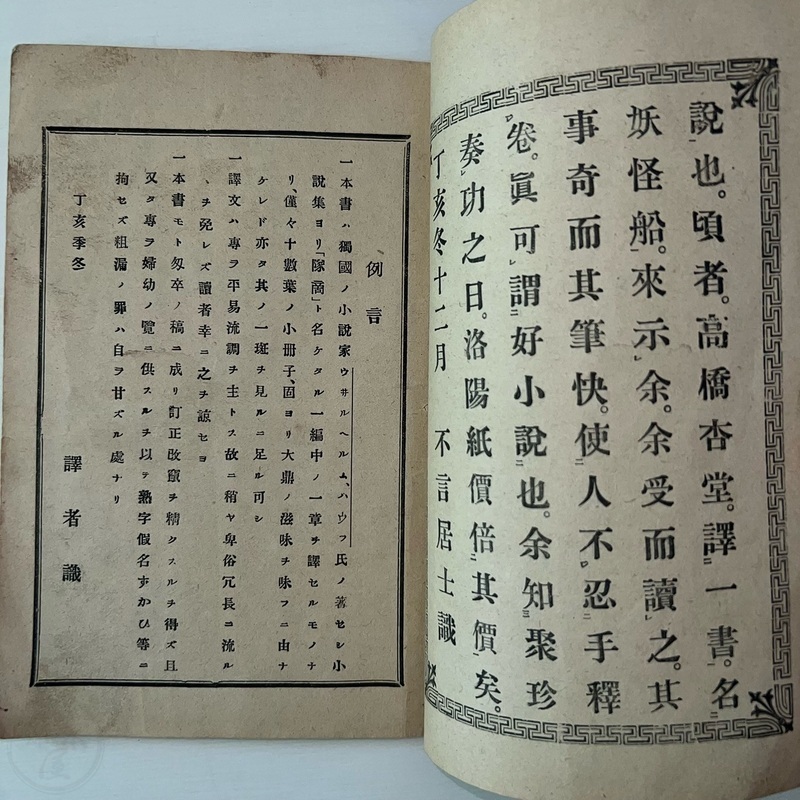 說也。頃者。高橋杏堂。譯一書。名
妖怪船。來示余。余受而讀之。其
事奇而其筆快。使人不忍手釋
卷。眞可謂好小說也。余知聚珍
奏功之日。洛陽紙價倍其價矣。
丁亥冬十二月　不言居士識
例言
一本書ハ獨國ノ小說家ウヰルヘルム、ハウフ氏ノ著セシ小
說集ヨリ「隊商」ト名ケタル一編中ノ一章ヲ譯セルモノナ
リ、僅々十數葉ノ小冊子、固ヨリ大鼎ノ滋味ヲ味フニ由ナ
ケレド亦タ其ノ一斑ヲ見ルニ足ル可シ
一譯文ハ專ラ平易流調ヲ主トス故ニ稍ヤ卑俗冗長ニ流ル
ヽヲ免レズ讀者幸ニ之ヲ諒セヨ
一本書モト匆卒ノ稿ニ成リ訂正改竄ヲ精クスルヲ得ズ且
又タ專ラ婦幼ノ覽ニ供スルヲ以テ熟字假名すかひ等ニ
拘セズ粗漏ノ罪ハ自ヲ甘ズル處ナリ
丁亥季冬
譯者識